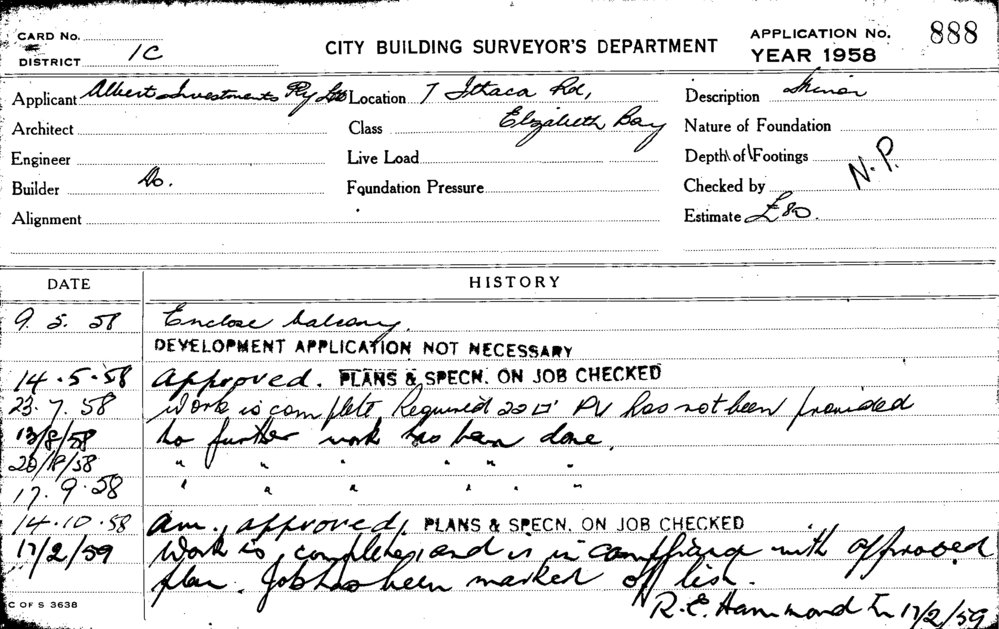 CARD No.
DISTRICT 1C
CITY BUILDING SURVEYOR'S DEPARTMENT
APPLICATION No. 888
YEAR 1958
Applicant Albert Investments Pty Ltd Location 7 Ithaca Rd, Description Minor
Architect Class Elizabeth Bay Nature of Foundation
Engineer Live Load Depth of Footings
Builder Do. Foundation Pressure Checked by N.P.
Alignment Estimate £80.
DATE HISTORY
9. 5. 58 Enclose balcony.
DEVELOPMENT APPLICATION NOT NECESSARY
14.5.58 Approved. PLANS & SPECN. ON JOB CHECKED
23.7.58 Work is complete Required 20□' PV has not been provided
13/8/58 No further work has been done.
20/8/58 " " " " " "
17.9.58 " " " " " "
14.10.58 am., approved, PLANS & SPECN. ON JOB CHECKED
17/2/59 Work is complete and is in compliance with approved
plan. Job has been marked off list.
C OF S 3638
R.E. Hammond 17/2/59